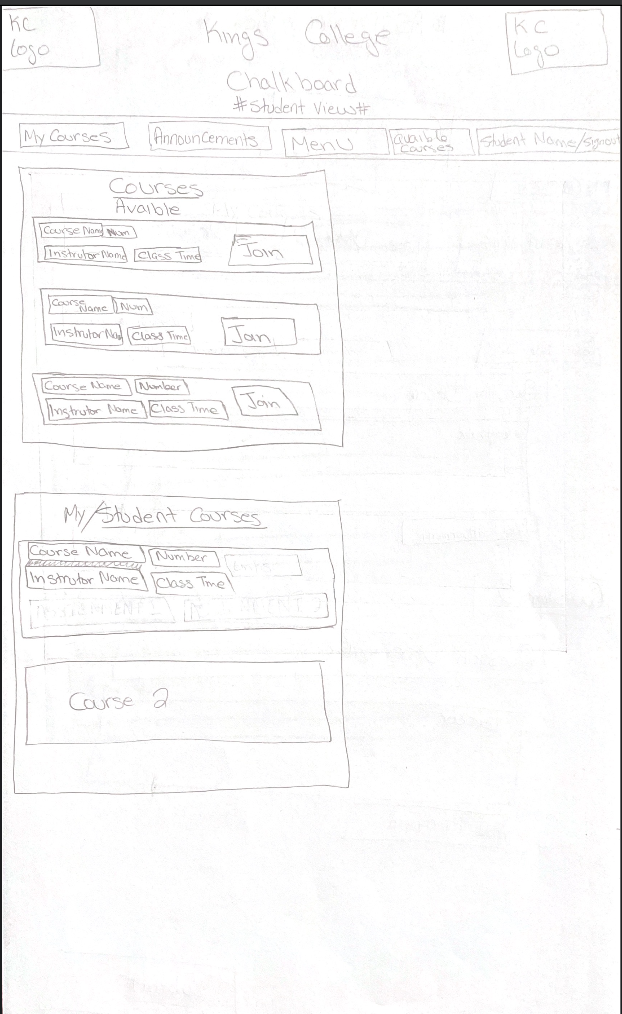 KC
Logo
Kings College
KC
Logo
Chalkboard
#Student View#
My Courses
Announcements
Menu
Availble
Courses
Student Name/Signout
Courses
Availble
Course Name
Num
Instrutor Name
Class Time
Join
Course
Name
Num
Class Time
Join
Course Name
Number
Instrutor Name
Class Time
Join
My/Student Courses
Course Name
Number
Instrutor Name
Class Tme
Course 2